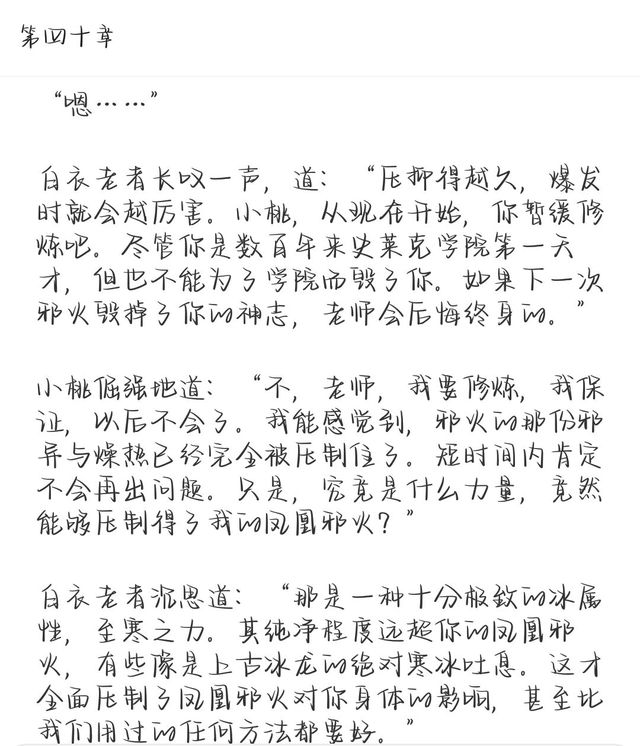 第四十章
“嗯……”
白衣老者长叹一声，道：“压抑得越久，爆发
时就会越厉害。小桃，从现在开始，你暂缓修
炼吧。尽管你是数百年来史莱克学院第一天
才，但也不能为了学院而毁了你。如果下一次
邪火毁掉了你的神志，老师会后悔终身的。”
小桃倔强地道：“不，老师，我要修炼，我保
证，以后不会了。我能感觉到，邪火的那份邪
异与燥热已经完全被压制住了。短时间内肯定
不会再出问题。只是，究竟是什么力量，竟然
能够压制得了我的凤凰邪火？”
白衣老者沉思道：“那是一种十分极致的冰属
性，至寒之力。其纯净程度远超你的凤凰邪
火，有些像是上古冰龙的绝对寒冰吐息。这才
全面压制了凤凰邪火对你身体的影响，甚至比
我们用过的任何方法都要好。”